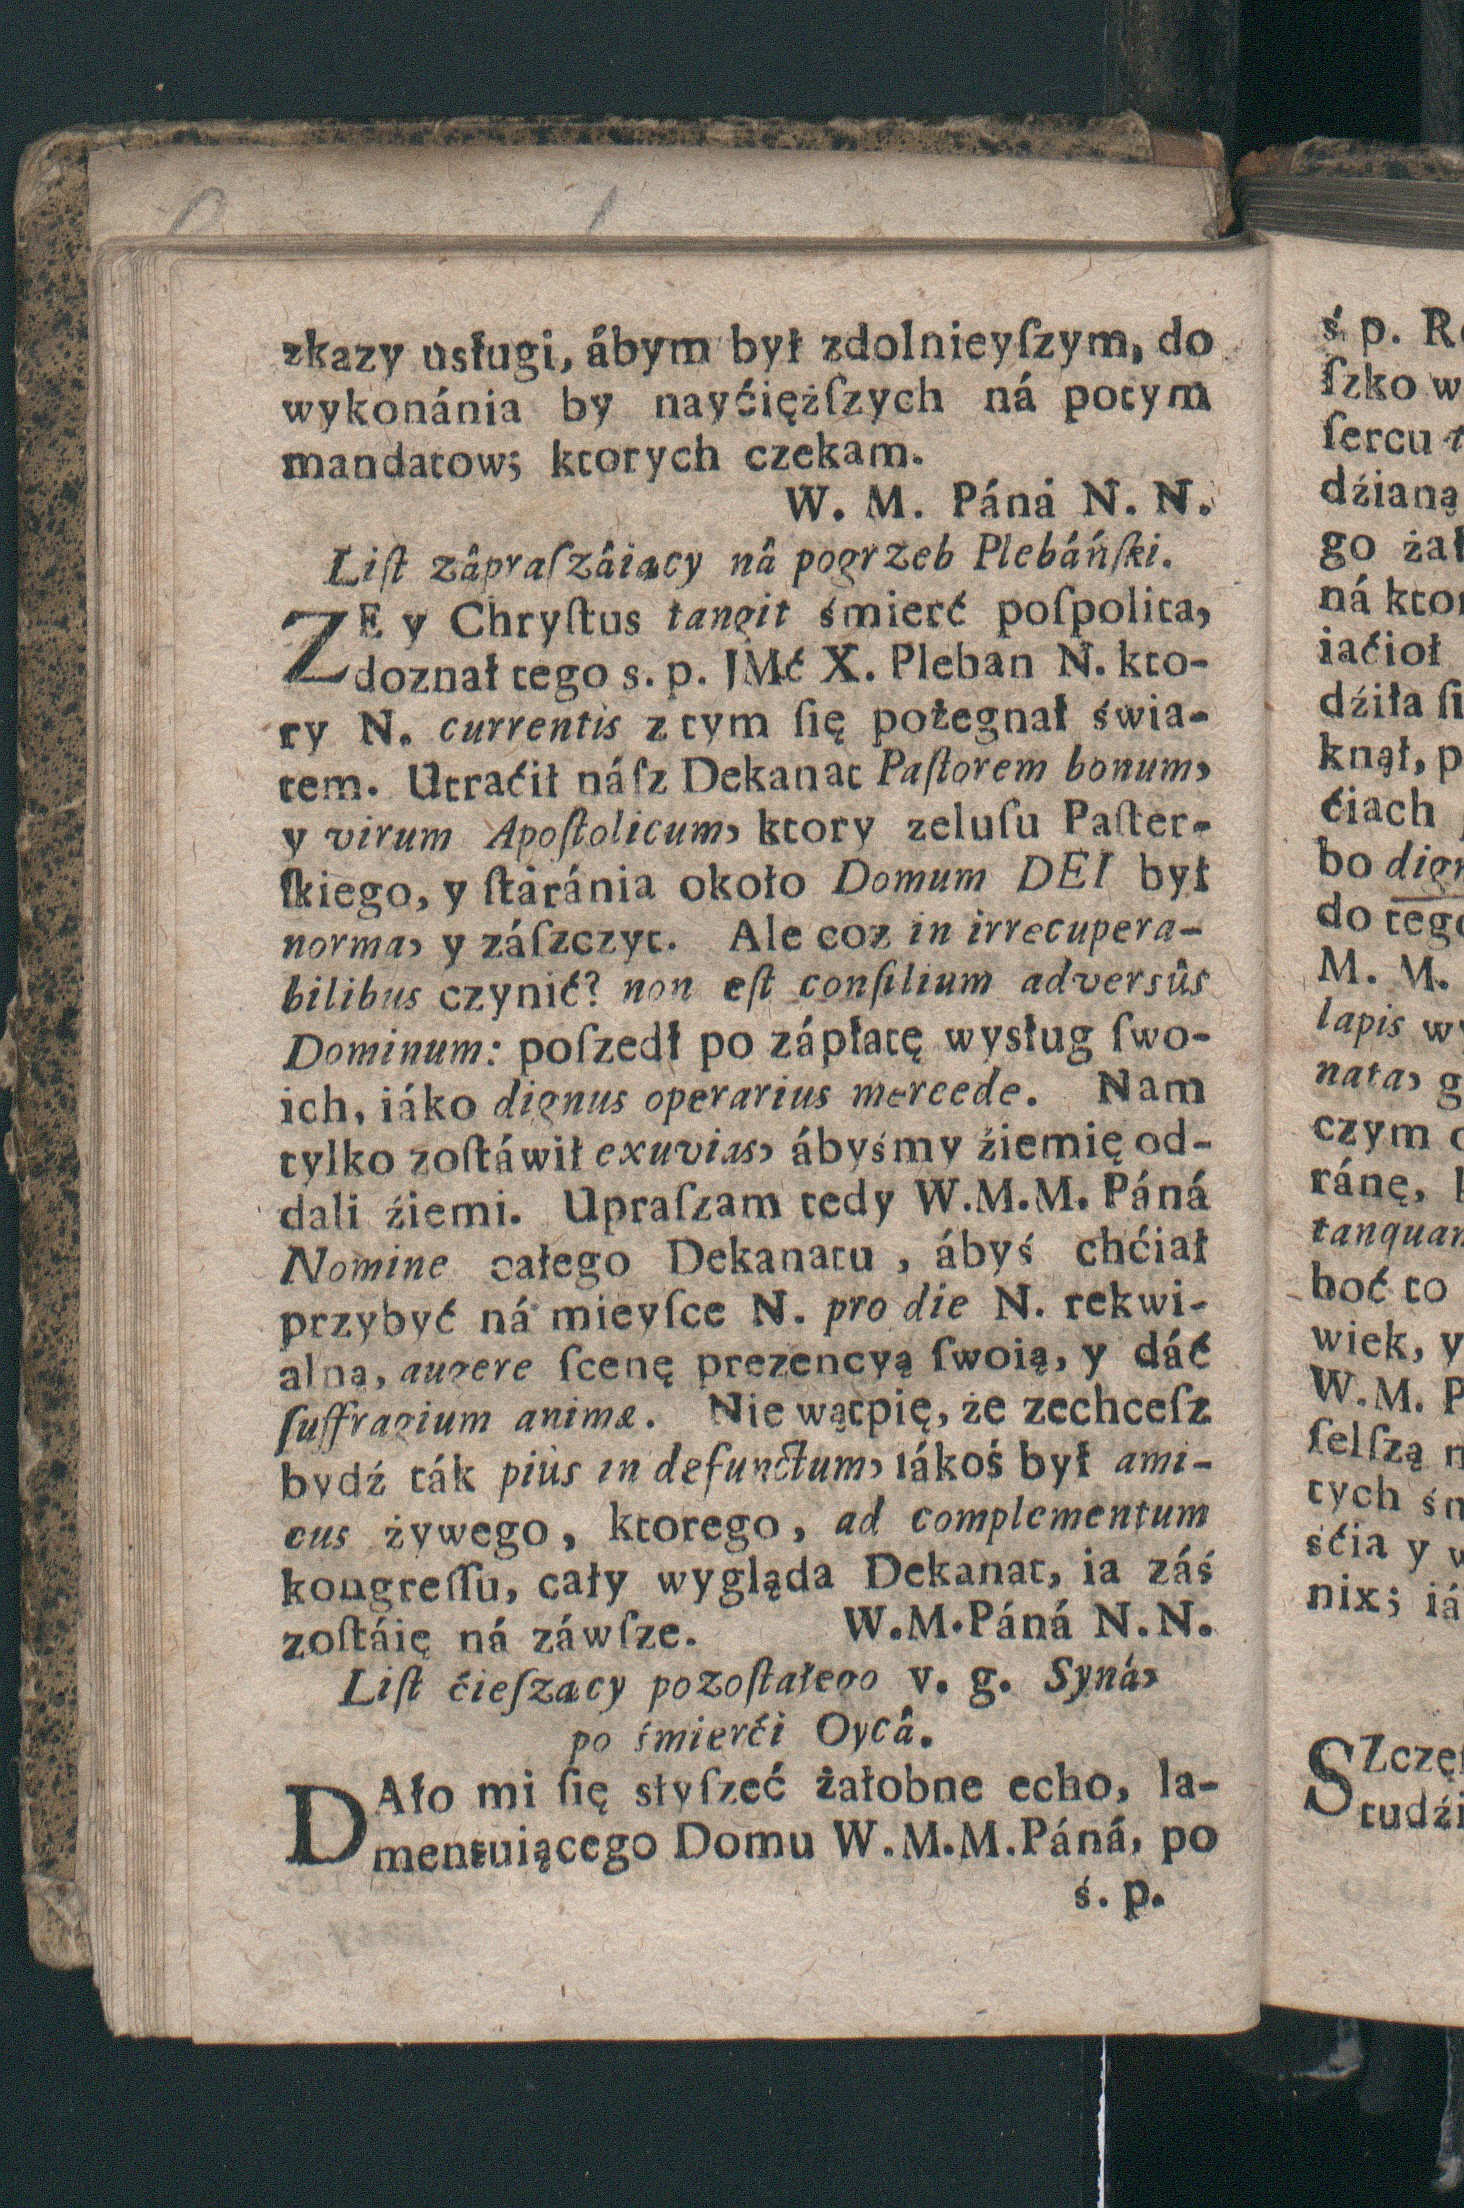 zkazy usługi, ábym był zdolnieyſzym, do
wykonánia by nayćiężſzych ná potym
mandatow; ktorych czekam.
W. M. Páná N. N.
Liſt zâpraſzâiący nâ pogrzeb Plebáńſki.
ZE y Chryſtus tangit śmierć poſpolita,
doznał tego s. p. JMć X. Pleban N. kto-
ry N. currentis z tym ſię pożegnał świa-
tem. Utraćił náſz Dekanat Paſtorem bonum,
y virum Apoſtolicum, ktory zeluſu Paſter-
ſkiego, y ſtáránia około Domum DEI był
norma, y záſzczyt. Ale coz in irrecupera-
bilibus czynić? non eſt conſilium adversûs
Dominum: poſzedł po zápłatę wysług ſwo-
ich, iáko dignus operarius mercede. Nam
tylko zoſtáwił exuvias, ábyśmy źiemię od-
dali źiemi. Upraſzam tedy W.M.M. Páná
Nomine całego Dekanatu, ábyś chćiał
przybyć ná mieyſce N. pro die N. rekwi-
alną, augere ſcenę prezencyą ſwoią, y dáć
ſuffragium animæ. Nie wątpię, że zechceſz
bydź ták piùs in defunctum, iákoś był ami-
cus żywego, ktorego, ad complementum
kongreſſu, cały wygląda Dekanat, ia záś
zoſtáię ná záwſze. W.M.Páná N.N.
Liſt ćieſzący pozoſtałego v. g. Syná,
po śmierći Oycâ.
DAło mi ſię słyſzeć żałobne echo, la-
mentuiącego Domu W.M.M.Páná, po
ś. p.
ś p.
ſzko
ſercu
dźianą
go
ná
iaćioł
dźiła
knął,
ćiach
bo
do
M. M.
lapis
nata,
czym
ránę,
boć to
wiek, y
W.M.
ſelſzą
tych
śćia y
nix;